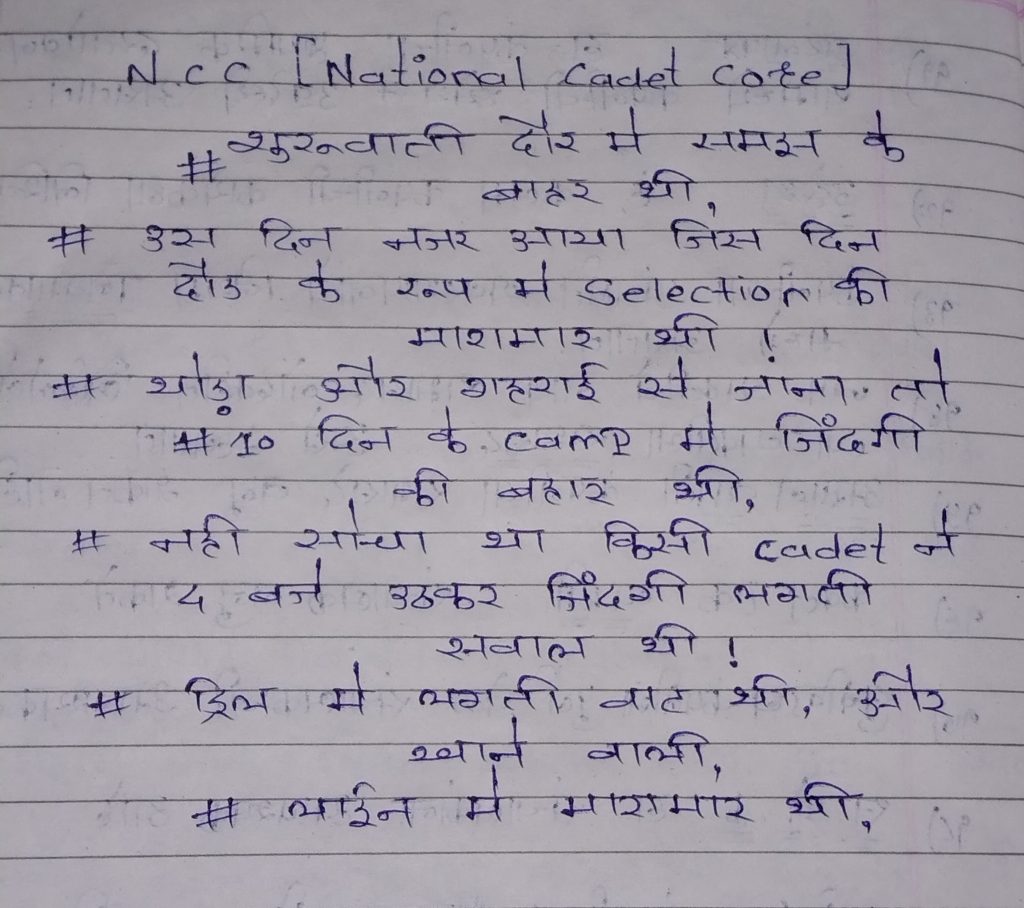 N.C.C [National Cadet Core]
# शुरूवाती दौर मे समझ के
बाहर थी,
# उस दिन नजर आया जिस दिन
दौड के रूप मे selection की
मारामार थी !
# थोड़ा और गहराई से जाना तो
# 10 दिन के camp मे जिंदगी
की बहार थी,
# नही सोचा था किसी cadet ने
4 बजे उठकर जिंदगी लगती
सवाल थी !
# ड्रिल मे लगती वाट थी, और
खाने वाली,
# लाईन मे मारामार थी,